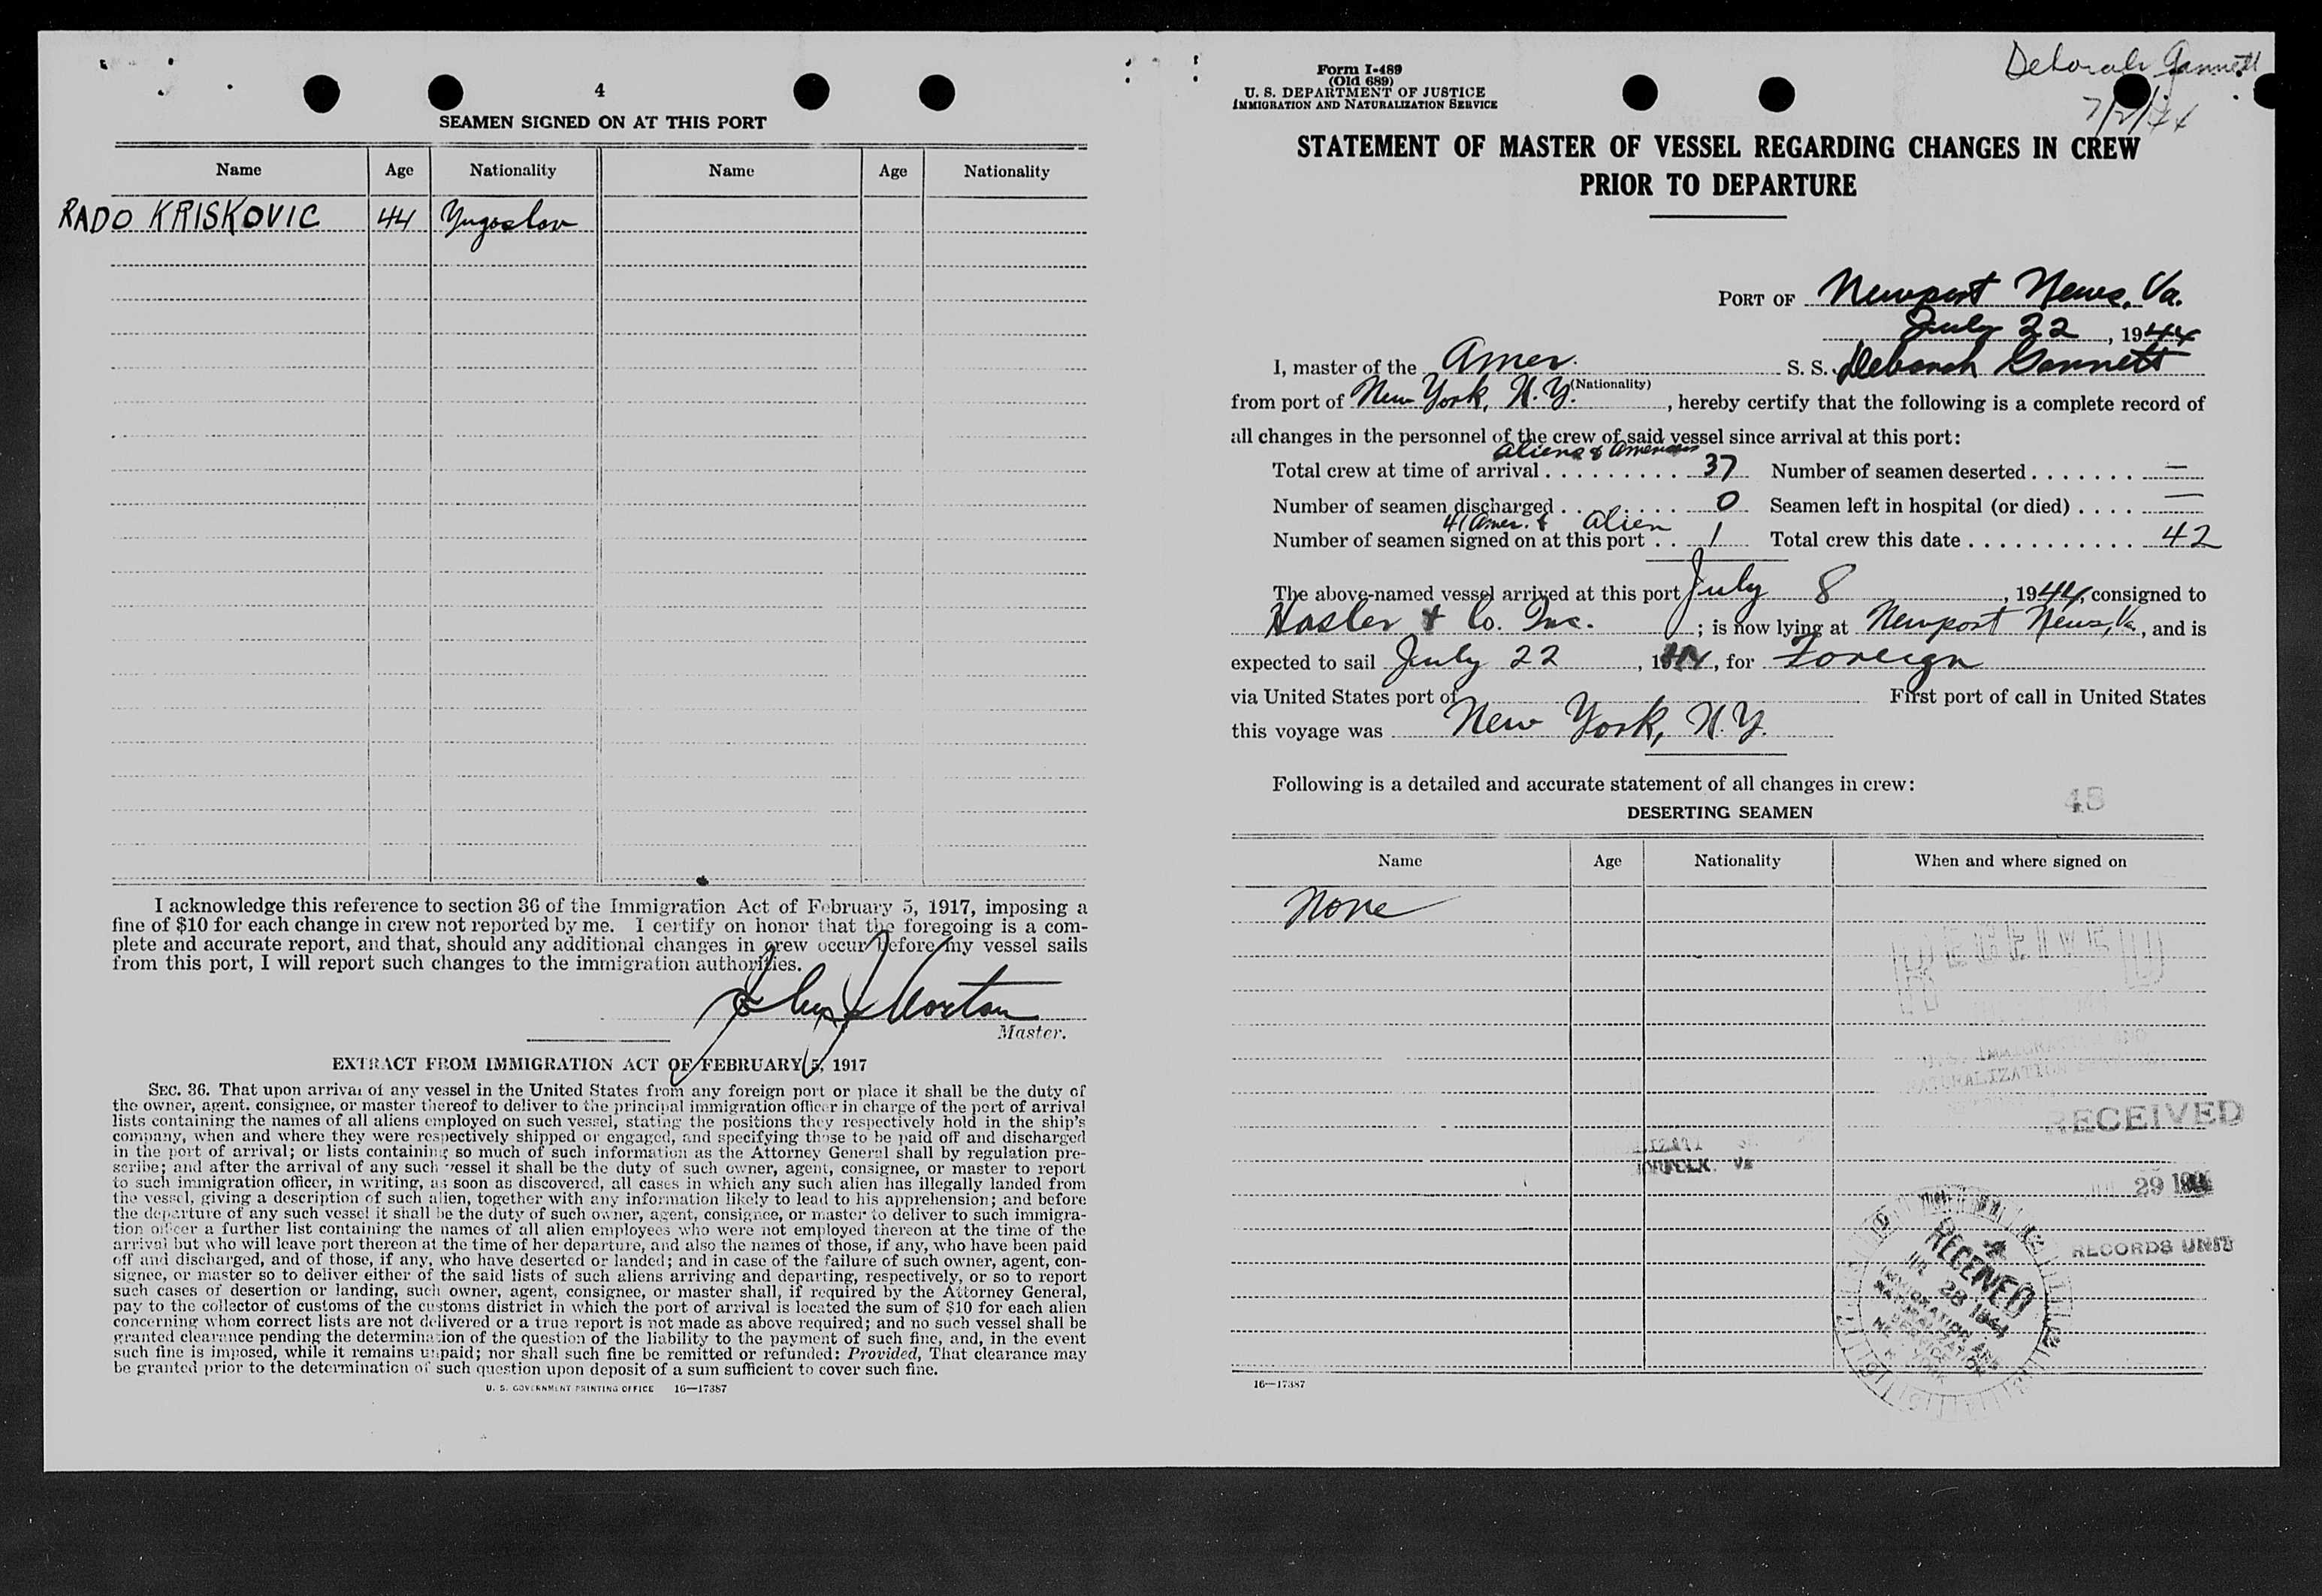 4
SEAMEN SIGNED ON AT THIS PORT
Name Age Nationality Name Age Nationality
RADO KRISKOVIC 44 Yugoslav
I acknowledge this reference to section 36 of the Immigration Act of February 5, 1917, imposing a
fine of $10 for each change in crew not reported by me. I certify on honor that the foregoing is a com-
plete and accurate report, and that, should any additional changes in crew occur before my vessel sails
from this port, I will report such changes to the immigration authorities.
Master.
EXTRACT FROM IMMIGRATION ACT OF FEBRUARY 5, 1917
SEC. 36. That upon arrival of any vessel in the United States from any foreign port or place it shall be the duty of
the owner, agent, consignee, or master thereof to deliver to the principal immigration officer in charge of the port of arrival
lists containing the names of all aliens employed on such vessel, stating the positions they respectively hold in the ship's
company, when and where they were respectively shipped or engaged, and specifying those to be paid off and discharged
in the port of arrival; or lists containing so much of such information as the Attorney General shall by regulation pre-
scribe; and after the arrival of any such vessel it shall be the duty of such owner, agent, consignee, or master to report
to such immigration officer, in writing, as soon as discovered, all cases in which any such alien has illegally landed from
the vessel, giving a description of such alien, together with any information likely to lead to his apprehension; and before
the departure of any such vessel it shall be the duty of such owner, agent, consignee, or master to deliver to such immigra-
tion officer a further list containing the names of all alien employees who were not employed thereon at the time of the
arrival but who will leave port thereon at the time of her departure, and also the names of those, if any, who have been paid
off and discharged, and of those, if any, who have deserted or landed; and in case of the failure of such owner, agent, con-
signee, or master so to deliver either of the said lists of such aliens arriving and departing, respectively, or so to report
such cases of desertion or landing, such owner, agent, consignee, or master shall, if required by the Attorney General,
pay to the collector of customs of the customs district in which the port of arrival is located the sum of $10 for each alien
concerning whom correct lists are not delivered or a true report is not made as above required; and no such vessel shall be
granted clearance pending the determination of the question of the liability to the payment of such fine, and, in the event
such fine is imposed, while it remains unpaid; nor shall such fine be remitted or refunded: Provided, That clearance may
be granted prior to the determination of such question upon deposit of a sum sufficient to cover such fine.
U. S. GOVERNMENT PRINTING OFFICE 16—17387
Deborah Gannett
Form I-489
(Old 689)
U. S. DEPARTMENT OF JUSTICE
IMMIGRATION AND NATURALIZATION SERVICE
STATEMENT OF MASTER OF VESSEL REGARDING CHANGES IN CREW
PRIOR TO DEPARTURE
PORT OF Newport News, Va.
July 22, 1944
I, master of the Amer. S. S. Deborah Gannett
(Nationality)
from port of New York, N.Y., hereby certify that the following is a complete record of
all changes in the personnel of the crew of said vessel since arrival at this port:
Aliens & Americans
Total crew at time of arrival 37 Number of seamen deserted —
Number of seamen discharged 0 Seamen left in hospital (or died) —
41 Amer. & Alien
Number of seamen signed on at this port 1 Total crew this date 42
The above-named vessel arrived at this port July 8, 1944, consigned to
Hasler & Co. Inc.; is now lying at Newport News, Va, and is
expected to sail July 22, 1944, for Foreign
via United States port of First port of call in United States
this voyage was New York, N.Y.
Following is a detailed and accurate statement of all changes in crew:
48
DESERTING SEAMEN
Name Age Nationality When and where signed on
None
RECEIVED
U. S. IMMIGRATION AND
NATURALIZATION SERVICE
RECEIVED
NORFOLK VA
29 1944
RECORDS UNIT
RECEIVED
JUL 28 1944
IMMIGRATION AND
NATURALIZATION
SERVICE
NEW YORK
16—17387